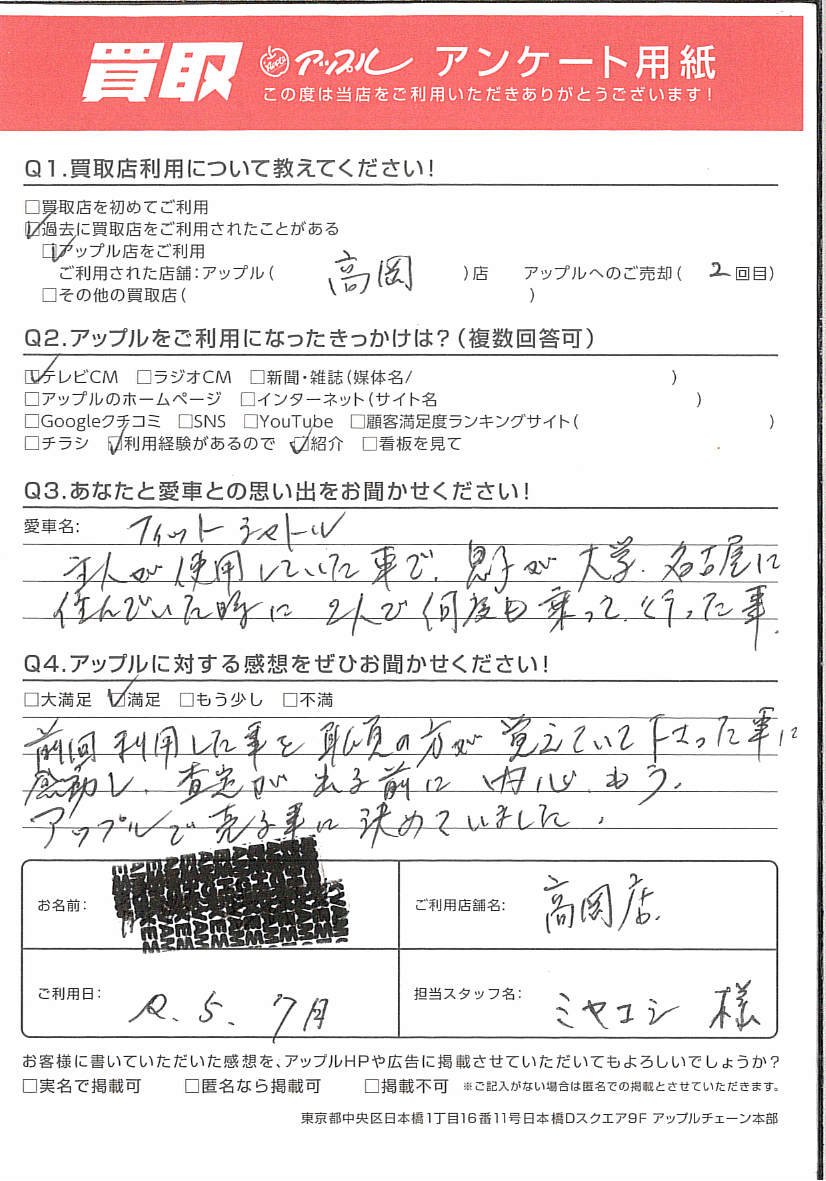 買取 アップル アンケート用紙
この度は当店をご利用いただきありがとうございます!
Q1.買取店利用について教えてください!
□買取店を初めてご利用
☑過去に買取店をご利用されたことがある
☑アップル店をご利用
ご利用された店舗:アップル( 高岡 )店 アップルへのご売却( 2 回目)
□その他の買取店( )
Q2.アップルをご利用になったきっかけは?(複数回答可)
☑テレビCM □ラジオCM □新聞・雑誌(媒体名/ )
□アップルのホームページ □インターネット(サイト名 )
□Googleクチコミ □SNS □YouTube □顧客満足度ランキングサイト( )
□チラシ ☑利用経験があるので ☑紹介 □看板を見て
Q3.あなたと愛車との思い出をお聞かせください!
愛車名: フィットシャトル
主人が使用していた車で、息子が大学、名古屋に
住んでいた時に2人で何度も乗って、行った車。
Q4.アップルに対する感想をぜひお聞かせください!
□大満足 ☑満足 □もう少し □不満
前回利用した事を の方が覚えていて下さった事に
感動し、査定が出る前に内心、もう、
アップルで売る事に決めていました。
お名前:
ご利用店舗名: 高岡店
ご利用日: R.5.7月
担当スタッフ名: ミヤコシ 様
お客様に書いていただいた感想を、アップルHPや広告に掲載させていただいてもよろしいでしょうか?
□実名で掲載可 □匿名なら掲載可 □掲載不可 ※ご記入がない場合は匿名での掲載とさせていただきます。
東京都中央区日本橋1丁目16番11号日本橋Dスクエア9F アップルチェーン本部